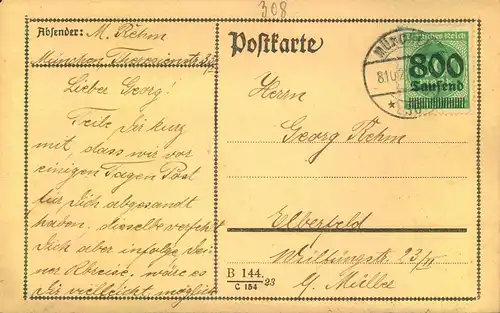 308
Absender: M. Rehm
München Theresienstr. 33/II
Lieber Georg!
Teile Dir kurz
mit, dass wir vor
einigen Tagen Post
für Dich abgesandt
haben, dieselbe verfehlt
Dich aber infolge Dei-
ner Abreise, wäre es
Dir vielleicht möglich
Postkarte
Deutsches Reich
800
Tausend
Herrn
Georg Rehm
Elberfeld
23/II
b/ Müller
B 144. 23
C 154